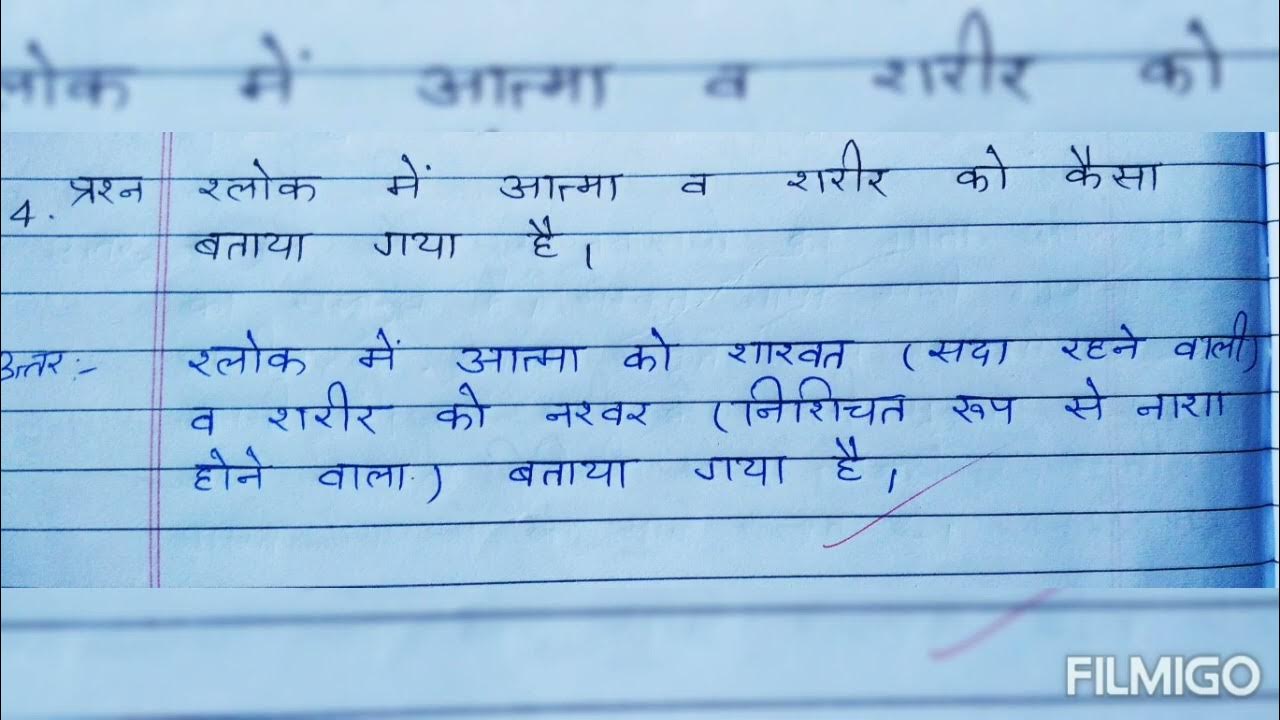 लोक में आत्मा व शरीर को
4. प्रश्न श्लोक में आत्मा व शरीर को कैसा
बताया गया है।
उत्तर:- श्लोक में आत्मा को शाश्वत (सदा रहने वाली)
व शरीर को नश्वर (निश्चित रूप से नाश
होने वाला.) बताया गया है।
FILMIGO